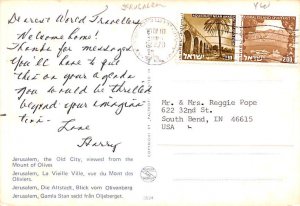 JERUSALEM
Dearest World Travellers
Welcome home!
Thanks for message.
You'll have to put
this on your agenda
you would be thrilled
beyond your imagina-
tion-
Love
Harry
Jerusalem, the Old City, viewed from the
Mount of Olives
Jerusalem, La Vieille Ville, vue du Mont des
Oliviers.
Jerusalem, Die Altstadt, Blick vom Ölivenberg
Jerusalem, Gamla Stan sedd från Oljeberget.
ISRAEL
ISRAEL
2.00
Mr. & Mrs. Reggie Pope
622 32nd St.
South Bend, IN 46615
USA